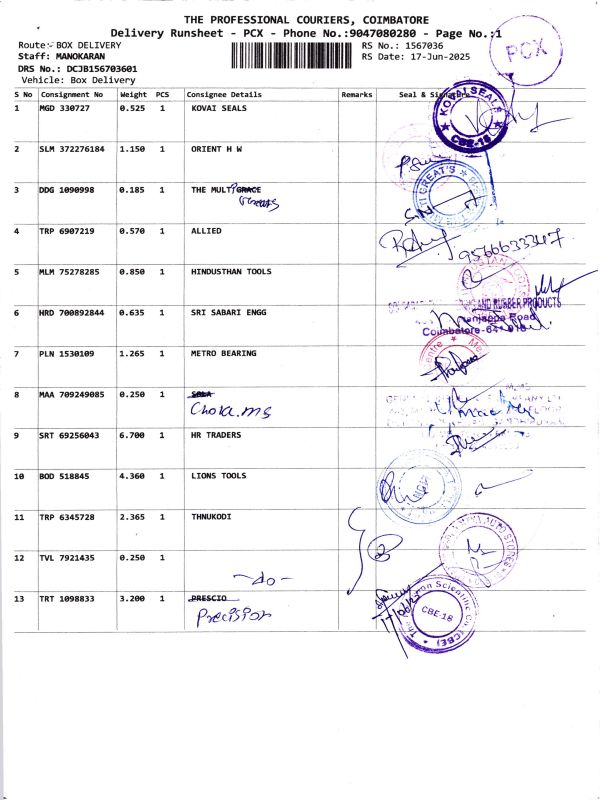 THE PROFESSIONAL COURIERS, COIMBATORE
Delivery Runsheet - PCX - Phone No.:9047080280 - Page No.:1
Route: BOX DELIVERY RS No.: 1567036
Staff: MANOKARAN RS Date: 17-Jun-2025
DRS No.: DCJB156703601
Vehicle: Box Delivery
PCX
S No Consignment No Weight PCS Consignee Details Remarks Seal & Signature
1 MGD 330727 0.525 1 KOVAI SEALS
KOVAI SEALS CBE-18
2 SLM 372276184 1.150 1 ORIENT H W
3 DDG 1090998 0.185 1 THE MULTIGRACE
Greats
4 TRP 6907219 0.570 1 ALLIED
9566633347
5 MLM 75278285 0.850 1 HINDUSTHAN TOOLS
AND RUBBER PRODUCTS
6 HRD 700892844 0.635 1 SRI SABARI ENGG
Nanjappa Road
Coimbatore-641 018
7 PLN 1530109 1.265 1 METRO BEARING
8 MAA 709249085 0.250 1 SOLA
Chola.ms
9 SRT 69256043 6.700 1 HR TRADERS
10 BOD 518845 4.360 1 LIONS TOOLS
11 TRP 6345728 2.365 1 THNUKODI
AUTO STORES
12 TVL 7921435 0.250 1
-do-
13 TRT 1098833 3.200 1 PRESCIO
Precision
CBE-18